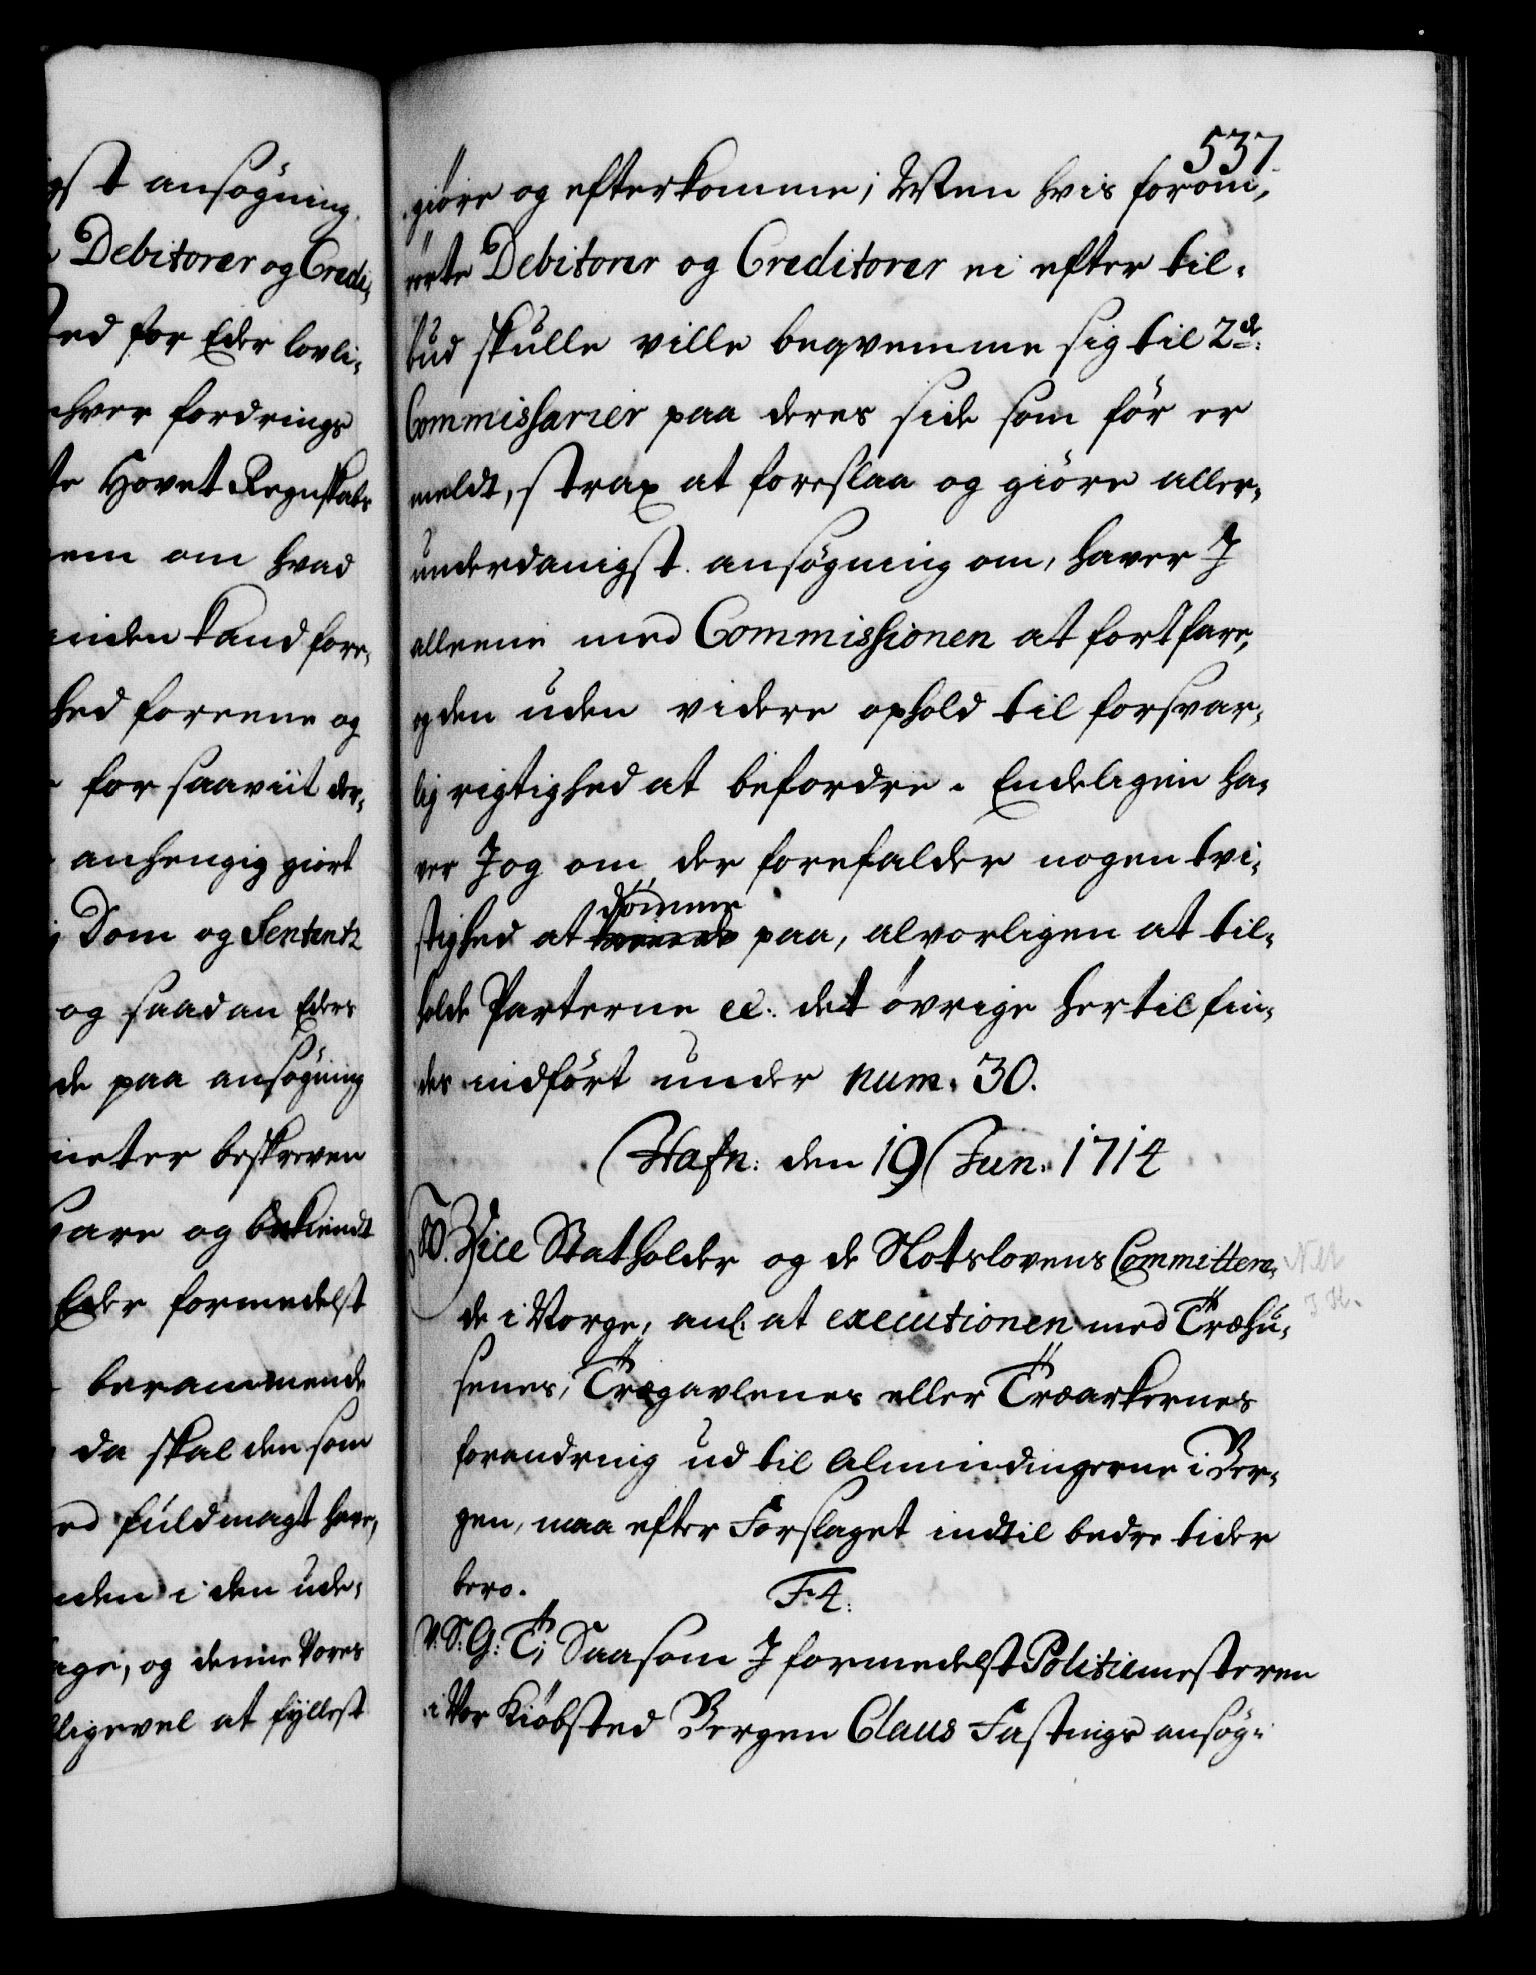 gst ansøgning
Debitorer og Credi-
sted for Eder lovli-
enhver fordrings
te Hovet Regnskabs
dem om hvad
inden kand fore,
hed foreene og
for saaviit der,
anhengig giort
Dom og Sententz
og saadan Eders
de paa ansøgning
beskreven
og bekiendt
Eder formedelst
berammende
da skal den som
fuldmagt have,
inden i den ude,
age, og denne Vores
ligevel at fyllest
537
giøre og efterkomme; Men hvis forom,
rørte Debitorer og Creditorer ei efter til-
bud skulle ville beqvemme sig til 2de:
Commissarier paa deres side som før er
meldt, strax at foreslaa og giøre aller-
underdanigst. ansøgning om, haver I
alleene med Commissionen at fortfare,
og den uden videre ophold til forsvar,
lig rigtighed at befordre. Endeligen ha,
ver I og om der forefalder nogen tvi,
dømme
stighed at paa, alvorligen at til-
holde Parterne etc: det øvrige hertil fin,
des indført under num. 30.
Hafn: den 19 Jun. 1714
80. Vice Statholder og de Slotslovens Committere,
de i Norge, anl: at executionen med Træhu,
senes, Trægavlenes eller Træarkernes
forandring ud til Almindingerne i Ber,
gen, maa efter Forslaget indtil bedre tider
bero.
F4.
V. S: G: T; Saasom I formedelst Politiemesteren
i Vor Kiøbsted Bergen Claus Fastings ansøg-